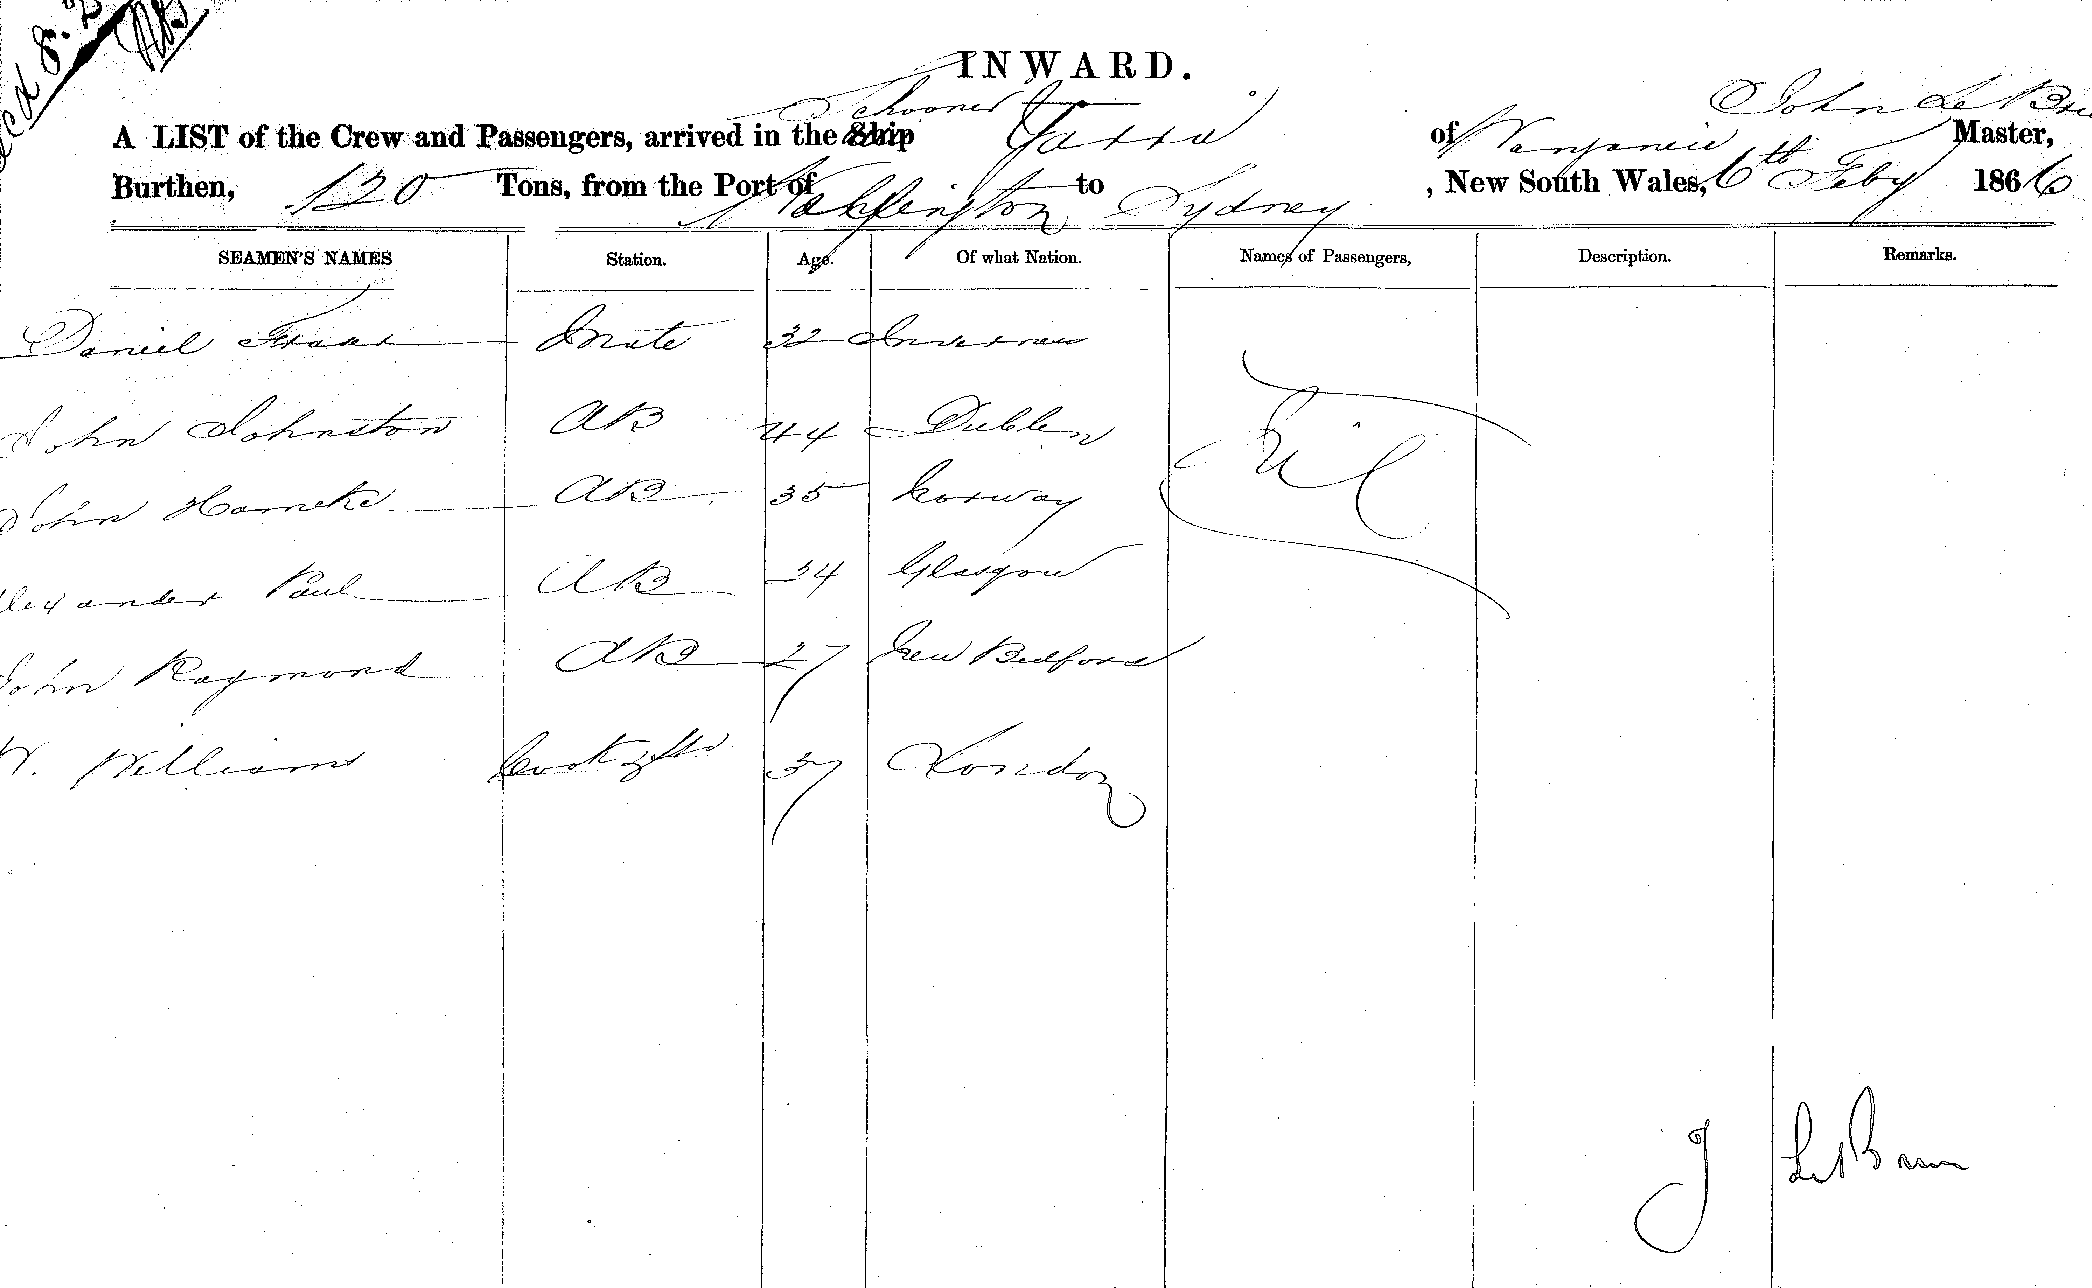 INWARD.
John Le
A LIST of the Crew and Passengers, arrived in the Ship Schooner Yarra of Master,
Burthen, 120 Tons, from the Port of to Sydney, New South Wales, 6th Feby 1866
SEAMEN'S NAMES Station. Age. Of what Nation. Names of Passengers, Description. Remarks.
Daniel Mate 32
John Johnston AB 44 Dublin Nil
John AB 35 Norway
Alexander Paul AB 34 Glasgow
John Raymond AB 27 New Bedford
W. Williams Cook 37 London
J Le